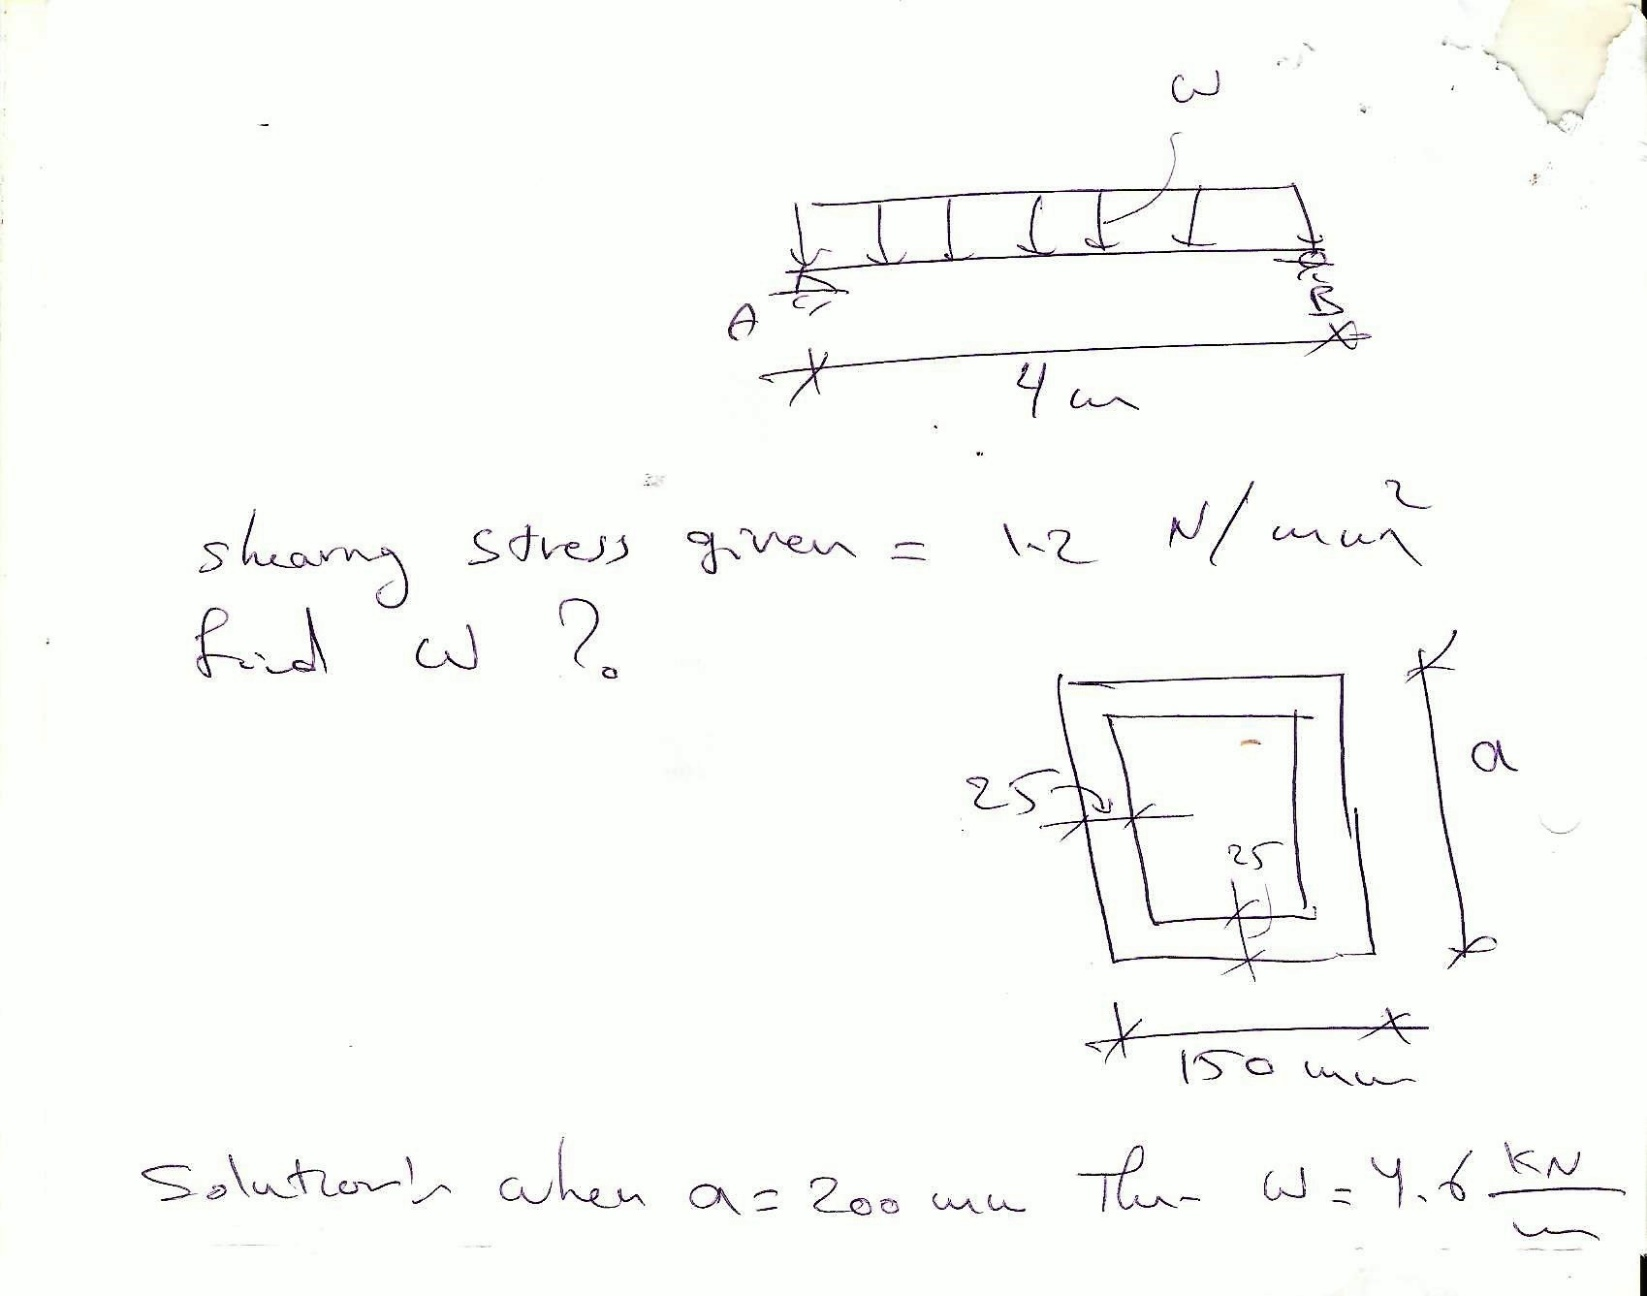 ω
A
B
4 m
shearing stress given = 1.2 N/mm²
find ω ?
a
25
25
150 mm
Solution: when a = 200 mm Then ω = 4.6 KN/m